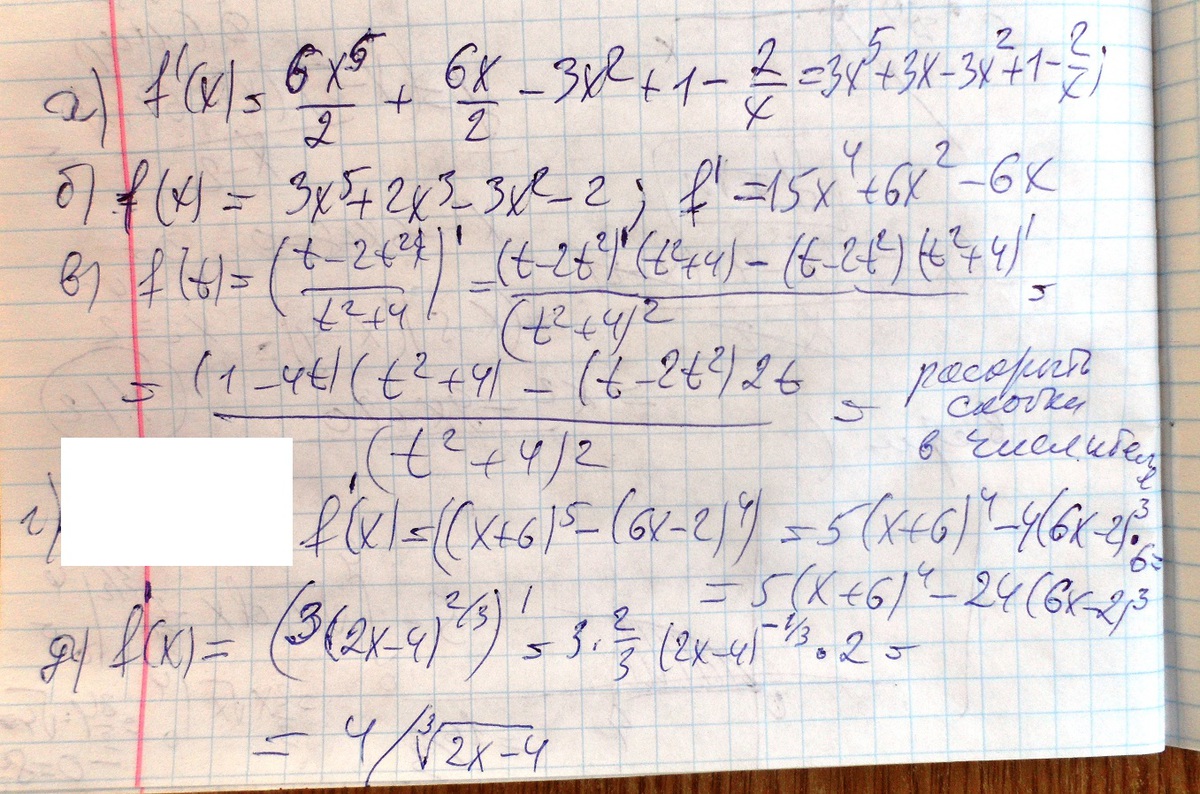 а) f'(x) = 6x⁵/2 + 6x/2 - 3x² + 1 - 2/x = 3x⁵ + 3x - 3x² + 1 - 2/x;
б) f(x) = 3x⁵ + 2x³ - 3x² - 2; f' = 15x⁴ + 6x² - 6x
в) f'(t) = ((t - 2t²)/(t² + 4))' = ((t - 2t²)'(t² + 4) - (t - 2t²)(t² + 4)')/(t² + 4)² =
= ((1 - 4t)(t² + 4) - (t - 2t²)2t)/(t² + 4)² = раскрыть скобки в числителе
г) f'(x) = ((x+6)⁵ - (6x-2)⁴)' = 5(x+6)⁴ - 4(6x-2)³·6 =
= 5(x+6)⁴ - 24(6x-2)³
д) f'(x) = (3(2x-4)^(2/3))' = 3·2/3 (2x-4)^(-1/3)·2 =
= 4/∛(2x-4)